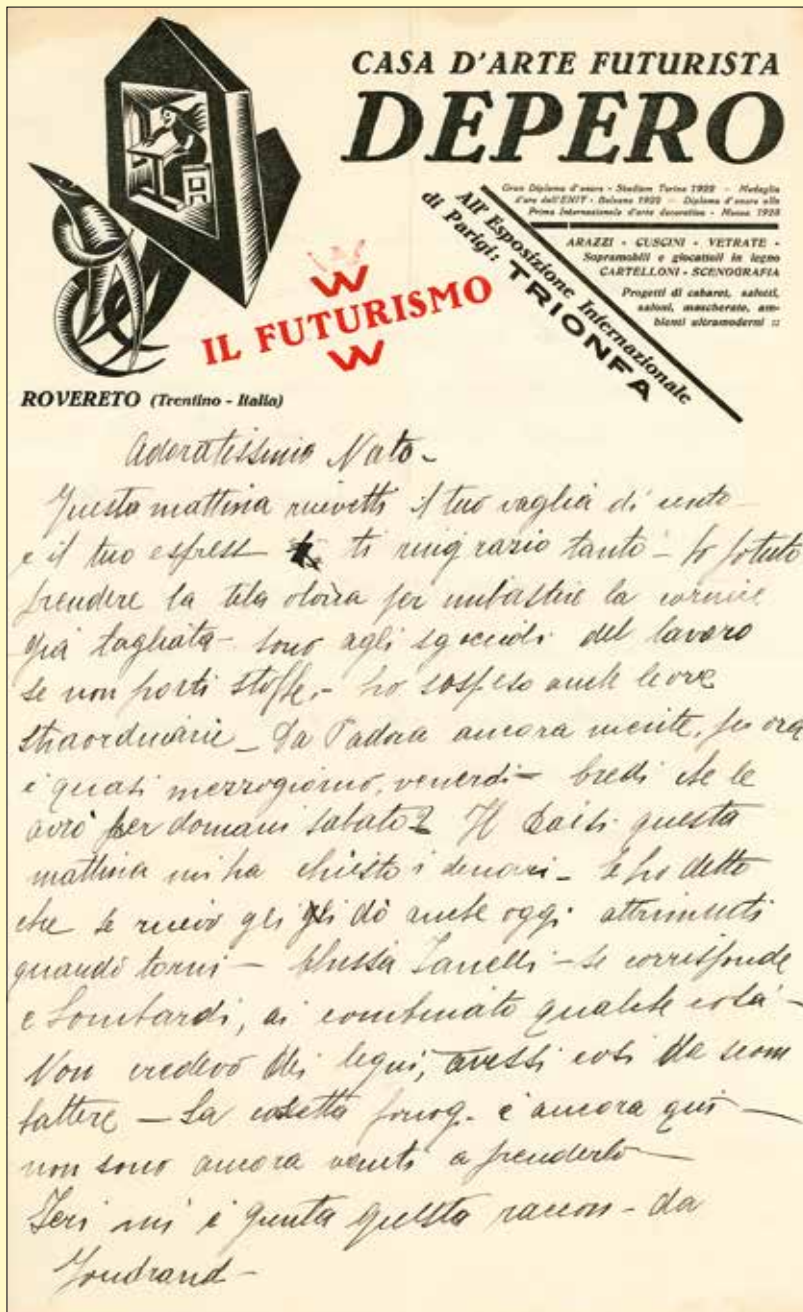 CASA D'ARTE FUTURISTA
DEPERO
Gran Diploma d'onore - Stadium Torino 1922 — Medaglia
d'oro dell'ENIT - Bolzano 1922 — Diploma d'onore alla
Prima Internazionale d'arte decorativa - Monza 1923
All'Esposizione Internazionale
di Parigi: TRIONFA
ARAZZI - CUSCINI - VETRATE -
Sopramobili e giocattoli in legno
CARTELLONI - SCENOGRAFIA
Progetti di cabaret, salotti,
saloni, mascherate, am-
bienti ultramoderni ::
W
IL FUTURISMO
W
ROVERETO (Trentino - Italia)
Adoratissimo Nato -
Questa mattina ricevetti il tuo vaglia di cento
e il tuo espress ti ringrazio tanto - ho potuto
prendere la tela per imbastire la cornice
già tagliata - sono agli sgoccioli del lavoro
se non porti stoffe - ho sospeso anche le ore
straordinarie - Da Padova ancora niente, per ora
è quasi mezzogiorno, venerdì - Credi che le
avrò per domani sabato? Il questa
mattina mi ha chiesto i denari - le ho detto
che se ricevo gli dò anche oggi altrimenti
quando torni - Zanelli - se corrisponde
e Lombardi, ai combinato qualche cosa -
Non credevo dei legni, avessi così da scom
battere - La è ancora qui -
non sono ancora venuti a prenderlo -
Ieri mi è giunta questa raccom - da